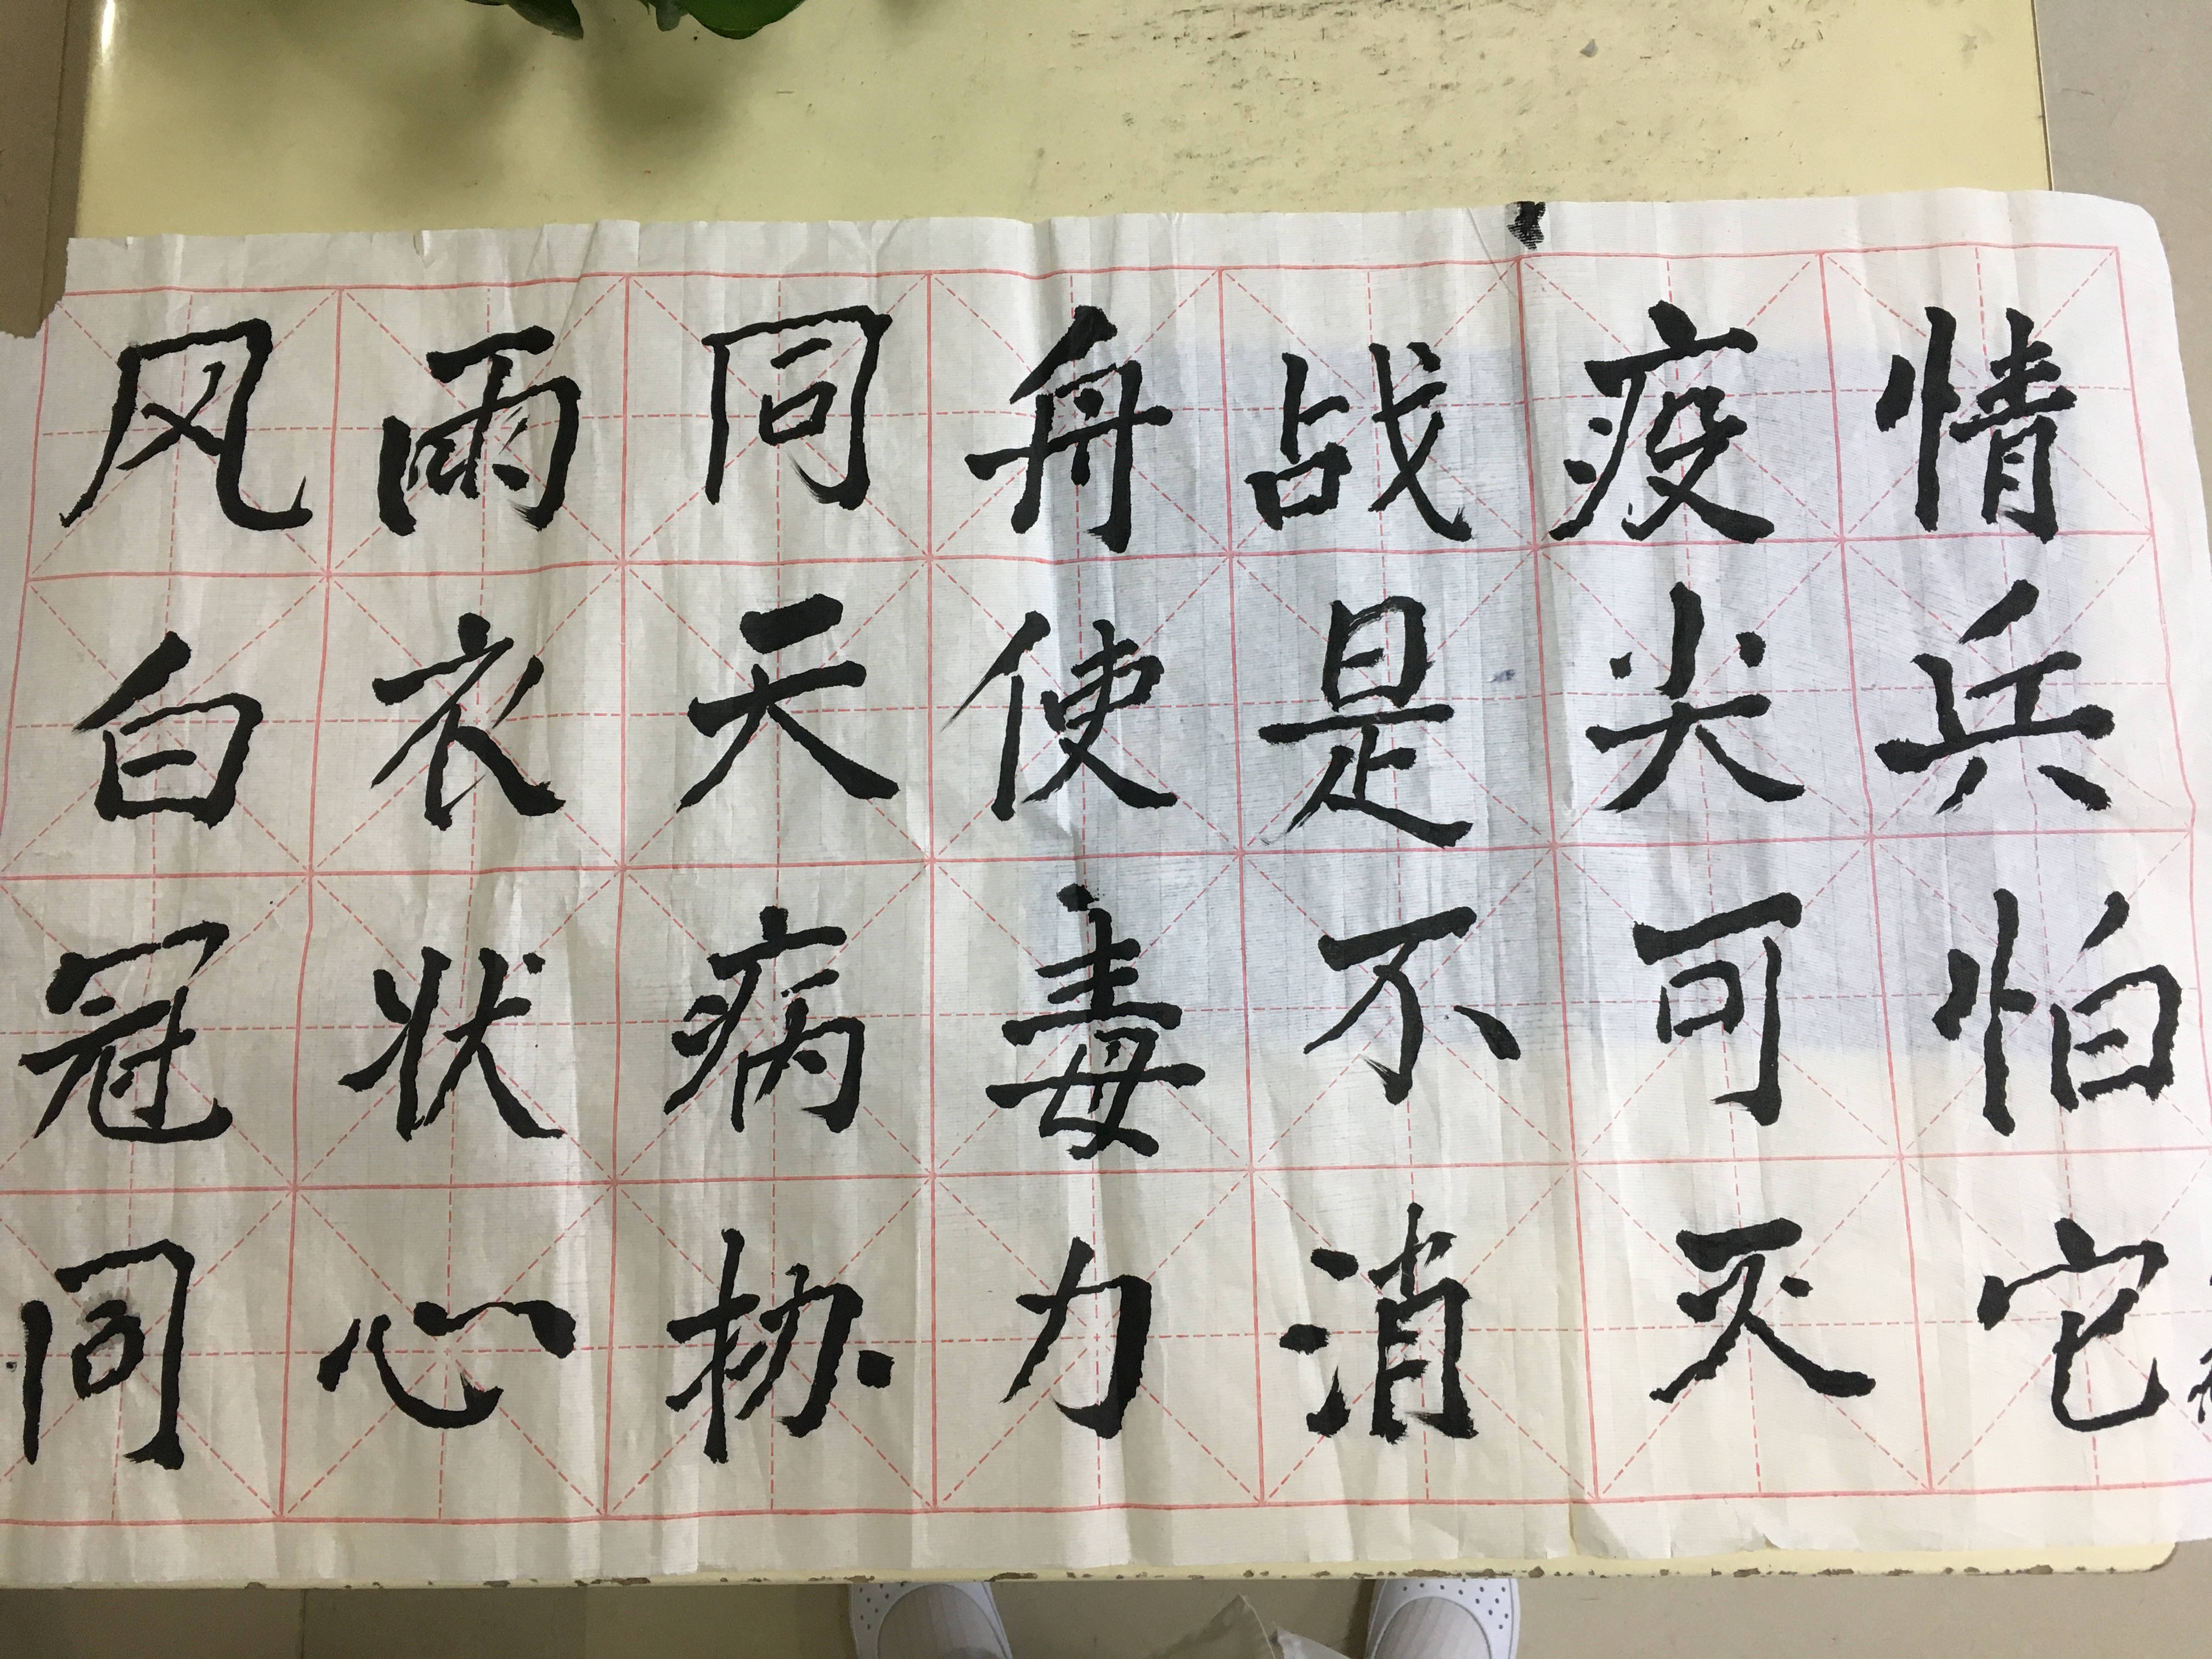 风雨同舟战疫情
白衣天使是尖兵
冠状病毒不可怕
同心协力消灭它